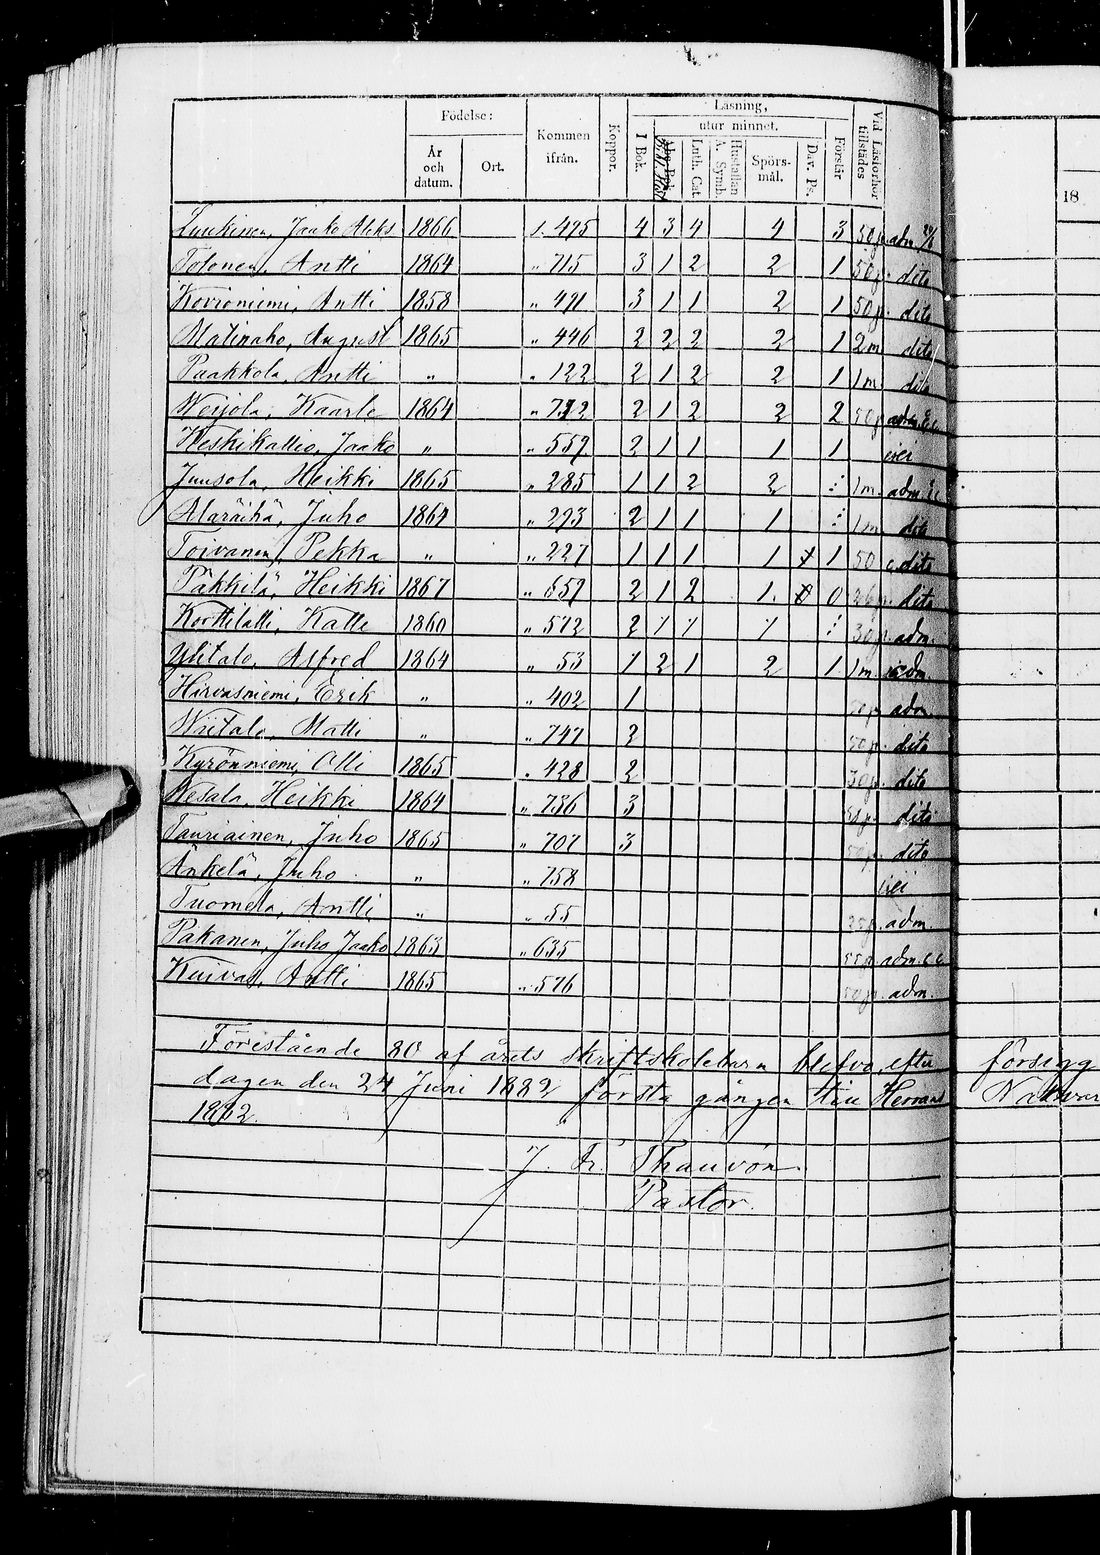 Födelse:
Kommen ifrån.
Koppor.
Läsning,
utur minnet.
Förstår
Vid Läsförhör tillstädes
År och datum.
Ort.
I Bok.
Luth. Cat.
Hustaflan A. Symb.
Spörs-mål.
Dav. Ps.
18
Luukinen, Jaako Aleks 1866 s. 495 4 3 4 4 3 50 p adm 24/6
Tolonen, Antti 1864 " 715 3 1 2 2 1 50 p. dito
Kovioniemi, Antti 1858 " 491 3 1 1 2 1 50 p. dito
Matinaho, August 1865 " 446 2 2 2 2 1 2 m dito
Paakkola, Antti " " 122 2 1 2 2 1 1 m dito
Weijola, Kaarle 1864 " 2 1 2 2 2 50 p adm.
Keskikallio, Jaako " " 559 2 1 1 1 1
Juusola, Heikki 1865 " 285 1 1 2 2 1 m. adm.
Määräikä, Juho 1864 " 293 2 1 1 1 1 m dito
Toivanen, Pekka " " 227 1 1 1 1 1 50 dito
Päkkilä, Heikki 1867 " 659 2 1 2 1. 0 dito
Korttilatti, Katti 1860 " 572 2 1 1 1 30 p. adm.
Ylitalo, Alfred 1864 " 53 1 2 1 2 1 1 m adm
Hirvasniemi, Erik " " 402 1 adm
Wiitala, Matti " " 747 2 50 p. dito
Kyrönniemi, Olli 1865 " 428 2 30 p. dito
Kesala, Heikki 1864 " 736 3 dito
Tauriainen, Juho 1865 " 707 3 50 p. dito
Änkelä, Juho " " 758
Tuomela, Antti " " 55 25 p. adm.
Pakanen, Juho Jaako 1863 " 635 adm.
Kuivas, Antti 1865 " 576 50 p. adm.
Förestående 80 af årets skriftskolebarn blefvo, efter försegg
dagen den 24 Juni 1882 första gången till Herrans Nattvar
1882.
J. Fr. Thauvón
Pastor.